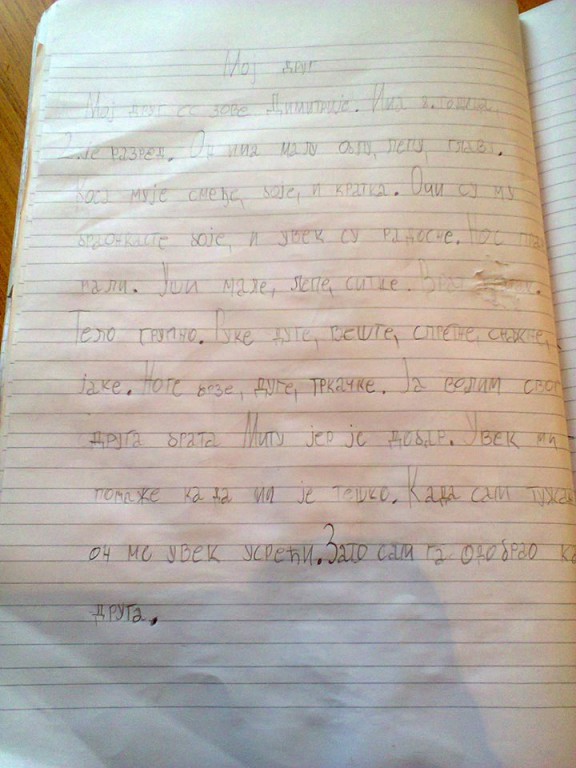 Мој друг
Мој друг се зове Димитрије. Има 8. година,
2 је разред. Он има малу облу, лепу, главу.
Коса му је смеђе, боје, и кратка. Очи су му
браонкасте боје, и увек су радосне. Нос
мали. Уши мале, лепе, ситне. Врат
Тело крупно. Руке дуге, веште, спретне, снажне,
јаке. Ноге брзе, дуге, тркачке. Ја волим свог
друга брата Миту јер је добар. Увек ми
помаже када ми је тешко. Када сам тужан
он ме увек усрећи. Зато сам га одобрао ка
друга.